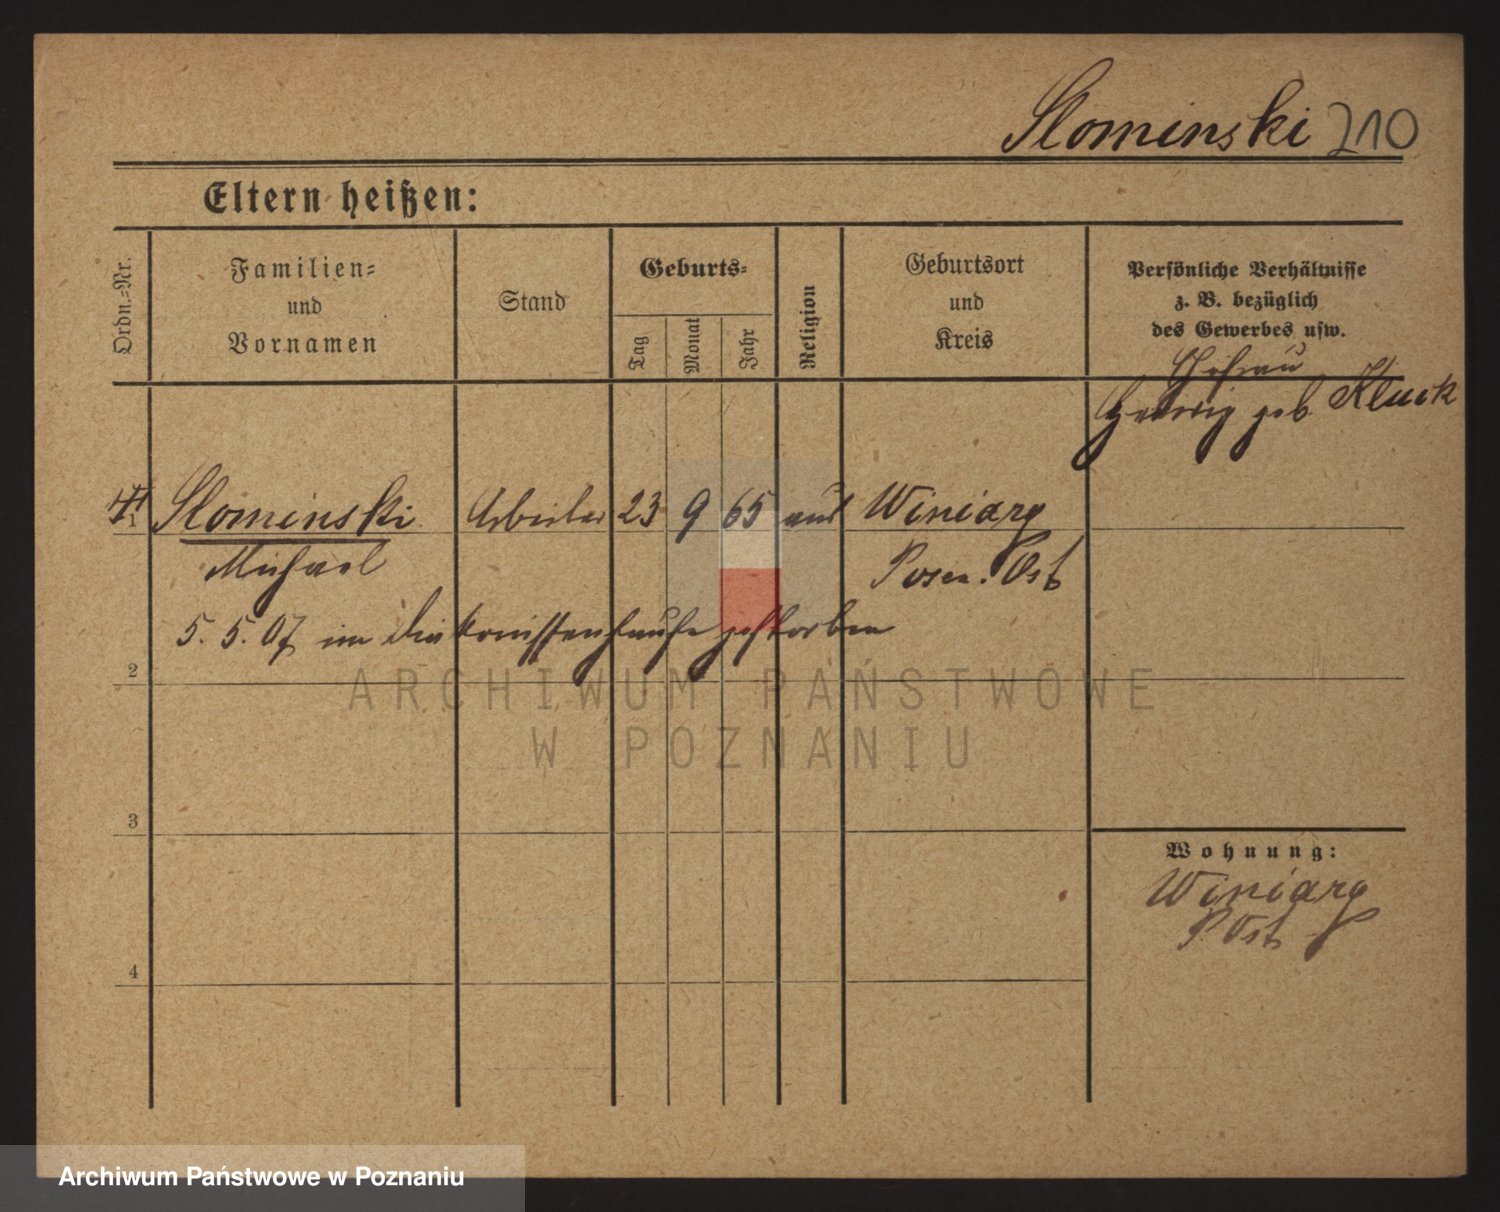 Slominski 210
Eltern heißen:
Ordn.-Nr.
Familien-
und
Vornamen
Stand
Geburts-
Tag
Monat
Jahr
Religion
Geburtsort
und
Kreis
Persönliche Verhältnisse
z. B. bezüglich
des Gewerbes usw.
Ehefrau
Hedwig geb. Kluck
1 Slominski Arbeiter 23 9 65 Winiary
Michael Posen. Ost
5. 5. 07 im Diakonissenhause gestorben
2
ARCHIWUM PAŃSTWOWE
W POZNANIU
3
Wohnung:
Winiary
P. Ost
4
Archiwum Państwowe w Poznaniu